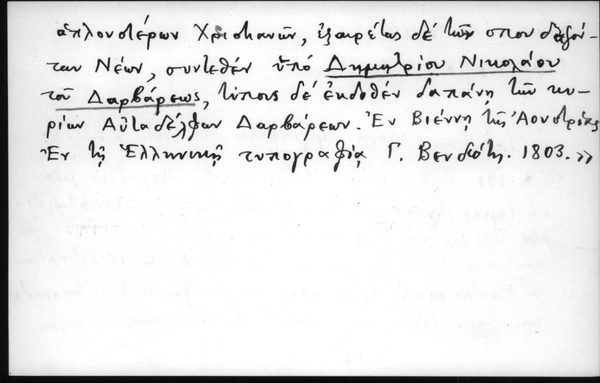 ἁπλουστέρων Χριστιανῶν, ἐξαιρέτως δέ τῶν σπουδαζόν-
των Νέων, συντεθέν ὑπό Δημητρίου Νικολάου
τοῦ Δαρβάρεως, τύποις δέ ἐκδοθέν δαπάνῃ τῶν κυ-
ρίων Αὐταδέλφων Δαρβάρεων. Ἐν Βιέννῃ τῆς Αουστρίας
Ἐν τῇ Ἑλληνικῇ τυπογραφίᾳ Γ. Βενδώτη. 1803.»